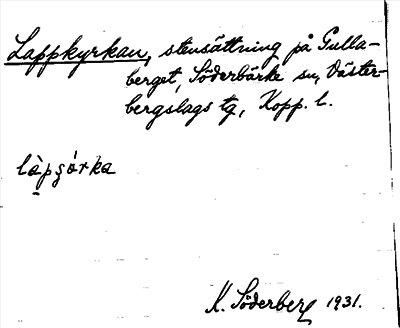 Lappkyrkan, stensättning på Gulla-
berget, Söderbärke sn, Väster-
bergslags tg, Kopp. l.
làpṣá̈rka
K. Söderberg 1931.